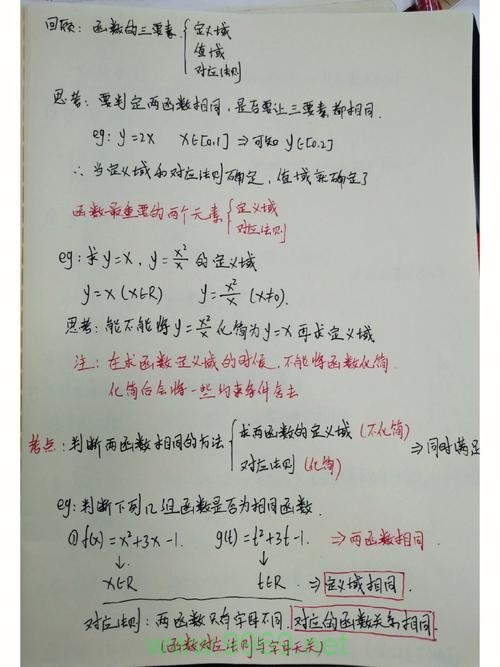 回顾：函数的三要素 { 定义域
值域
对应法则
思考：要判定两函数相同，是否要让三要素都相同．
eg：y=2x　x∈[0,1] ⇒ 可知 y∈[0,2]
∴ 当定义域和对应法则确定，值域就确定了
函数最重要的两个元素 { 定义域
对应法则
eg：求y=x，y=x²/x 的定义域
y=x (x∈R)　y=x²/x (x≠0)．
思考：能不能将y=x²/x化简为y=x再求定义域
注：在求函数定义域的时候，不能将函数化简．
化简后会将一些约束条件舍去
考点：判断两函数相同的方法 { 求两函数的定义域（不化简）
对应法则（化简） ⇒同时满足
eg：判断下列12组函数是否为相同函数．
①f(x)=x²+3x-1．　g(t)=t²+3t-1．⇒两函数相同．
↓　↓
x∈R　t∈R　⇒ 定义域相同
对应法则：两函数只有字母不同，对应的函数关系相同
（函数对应法则与字母无关）